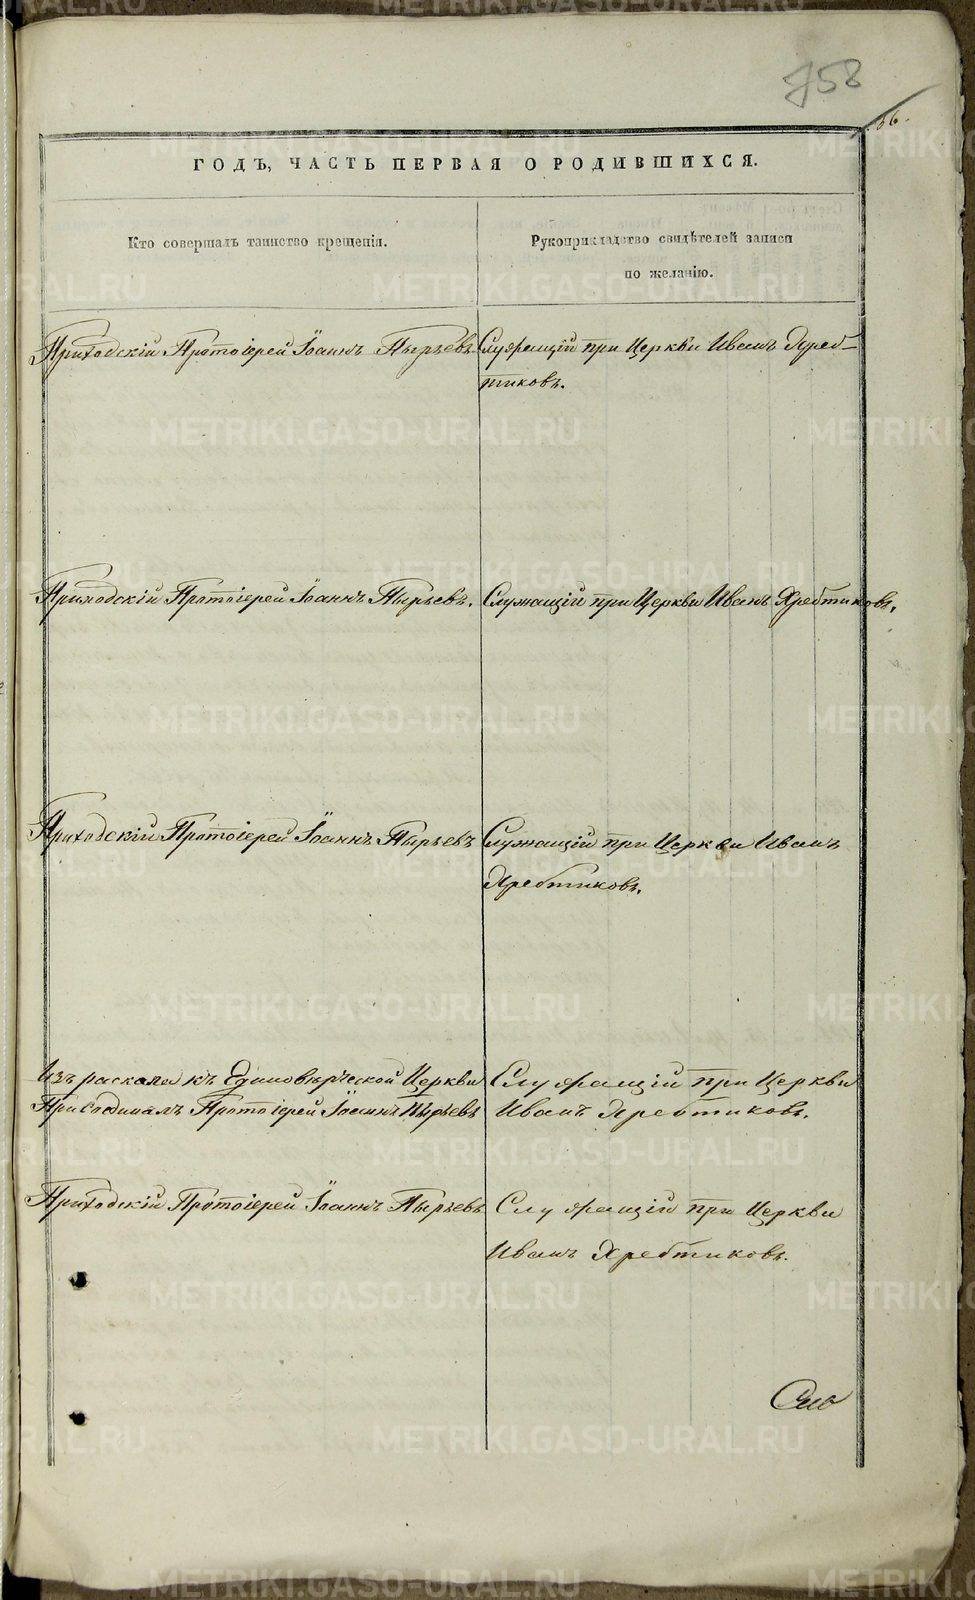 758
56.
ГОДЪ, ЧАСТЬ ПЕРВАЯ О РОДИВШИХСЯ.
Кто совершалъ таинство крещенія.
Рукоприкладство свидѣтелей записи
по желанію.
Приходскій Протоіерей Іоаннъ Пырьевъ
Служащій при Церкви Иванъ Хреб-
тиковъ.
Приходскій Протоіерей Іоаннъ Пырьевъ.
Служащій при Церкви Иванъ Хребтиковъ.
Приходскій Протоіерей Іоаннъ Пырьевъ
Служащій при Церкви Иванъ
Хребтиковъ.
Изъ раскола къ Единовѣрческой Церкви
Присоединялъ Протоіерей Іоаннъ Пырьевъ
Служащій при Церкви
Иванъ Хребтиковъ.
Приходскій Протоіерей Іоаннъ Пырьевъ
Служащій при Церкви
Иванъ Хребтиковъ.
METRIKI.GASO-URAL.RU